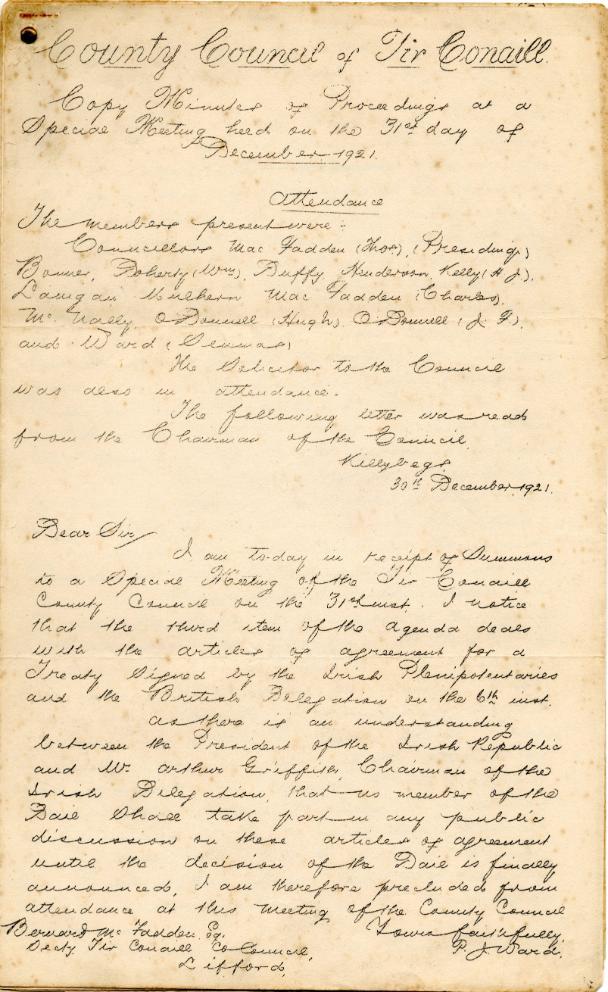 County Council of Tir Conaill
Copy Minutes of Proceedings at a
Special Meeting held on the 31st day of
December 1921.
Attendance
The members present were:
Councillors Mac Fadden (Thos), (Presiding)
Bonner, Doherty (Wm), Duffy, Henderson, Kelly (H J),
Lanigan Mulhern Mac Fadden (Charles)
Mc Nally, O'Donnell (Hugh), O'Donnell (J. F),
and Ward (Seumas)
The Solicitor to the Council
was also in attendance.
The following letter was read
from the Chairman of the Council.
Killybegs,
30th December, 1921.
Dear Sir/
I am to-day in receipt of Summons
to a Special Meeting of the Tir Conaill
County Council on the 31st inst. I notice
that the third item of the agenda deals
with the articles of agreement for a
Treaty signed by the Irish Plenipotentaries
and the British Delegation on the 6th inst.
As there is an understanding
between the President of the Irish Republic
and Mr. Arthur Griffith, Chairman of the
Irish Delegation, that no member of the
Dail shall take part in any public
discussion on these articles of agreement
until the decision of the Dail is finally
announced, I am therefore precluded from
attendance at this meeting of the County Council
Yours faithfully,
P. J. Ward.
Bernard Mc Fadden Esq.
Secty Tir Conaill Co Council,
Lifford.